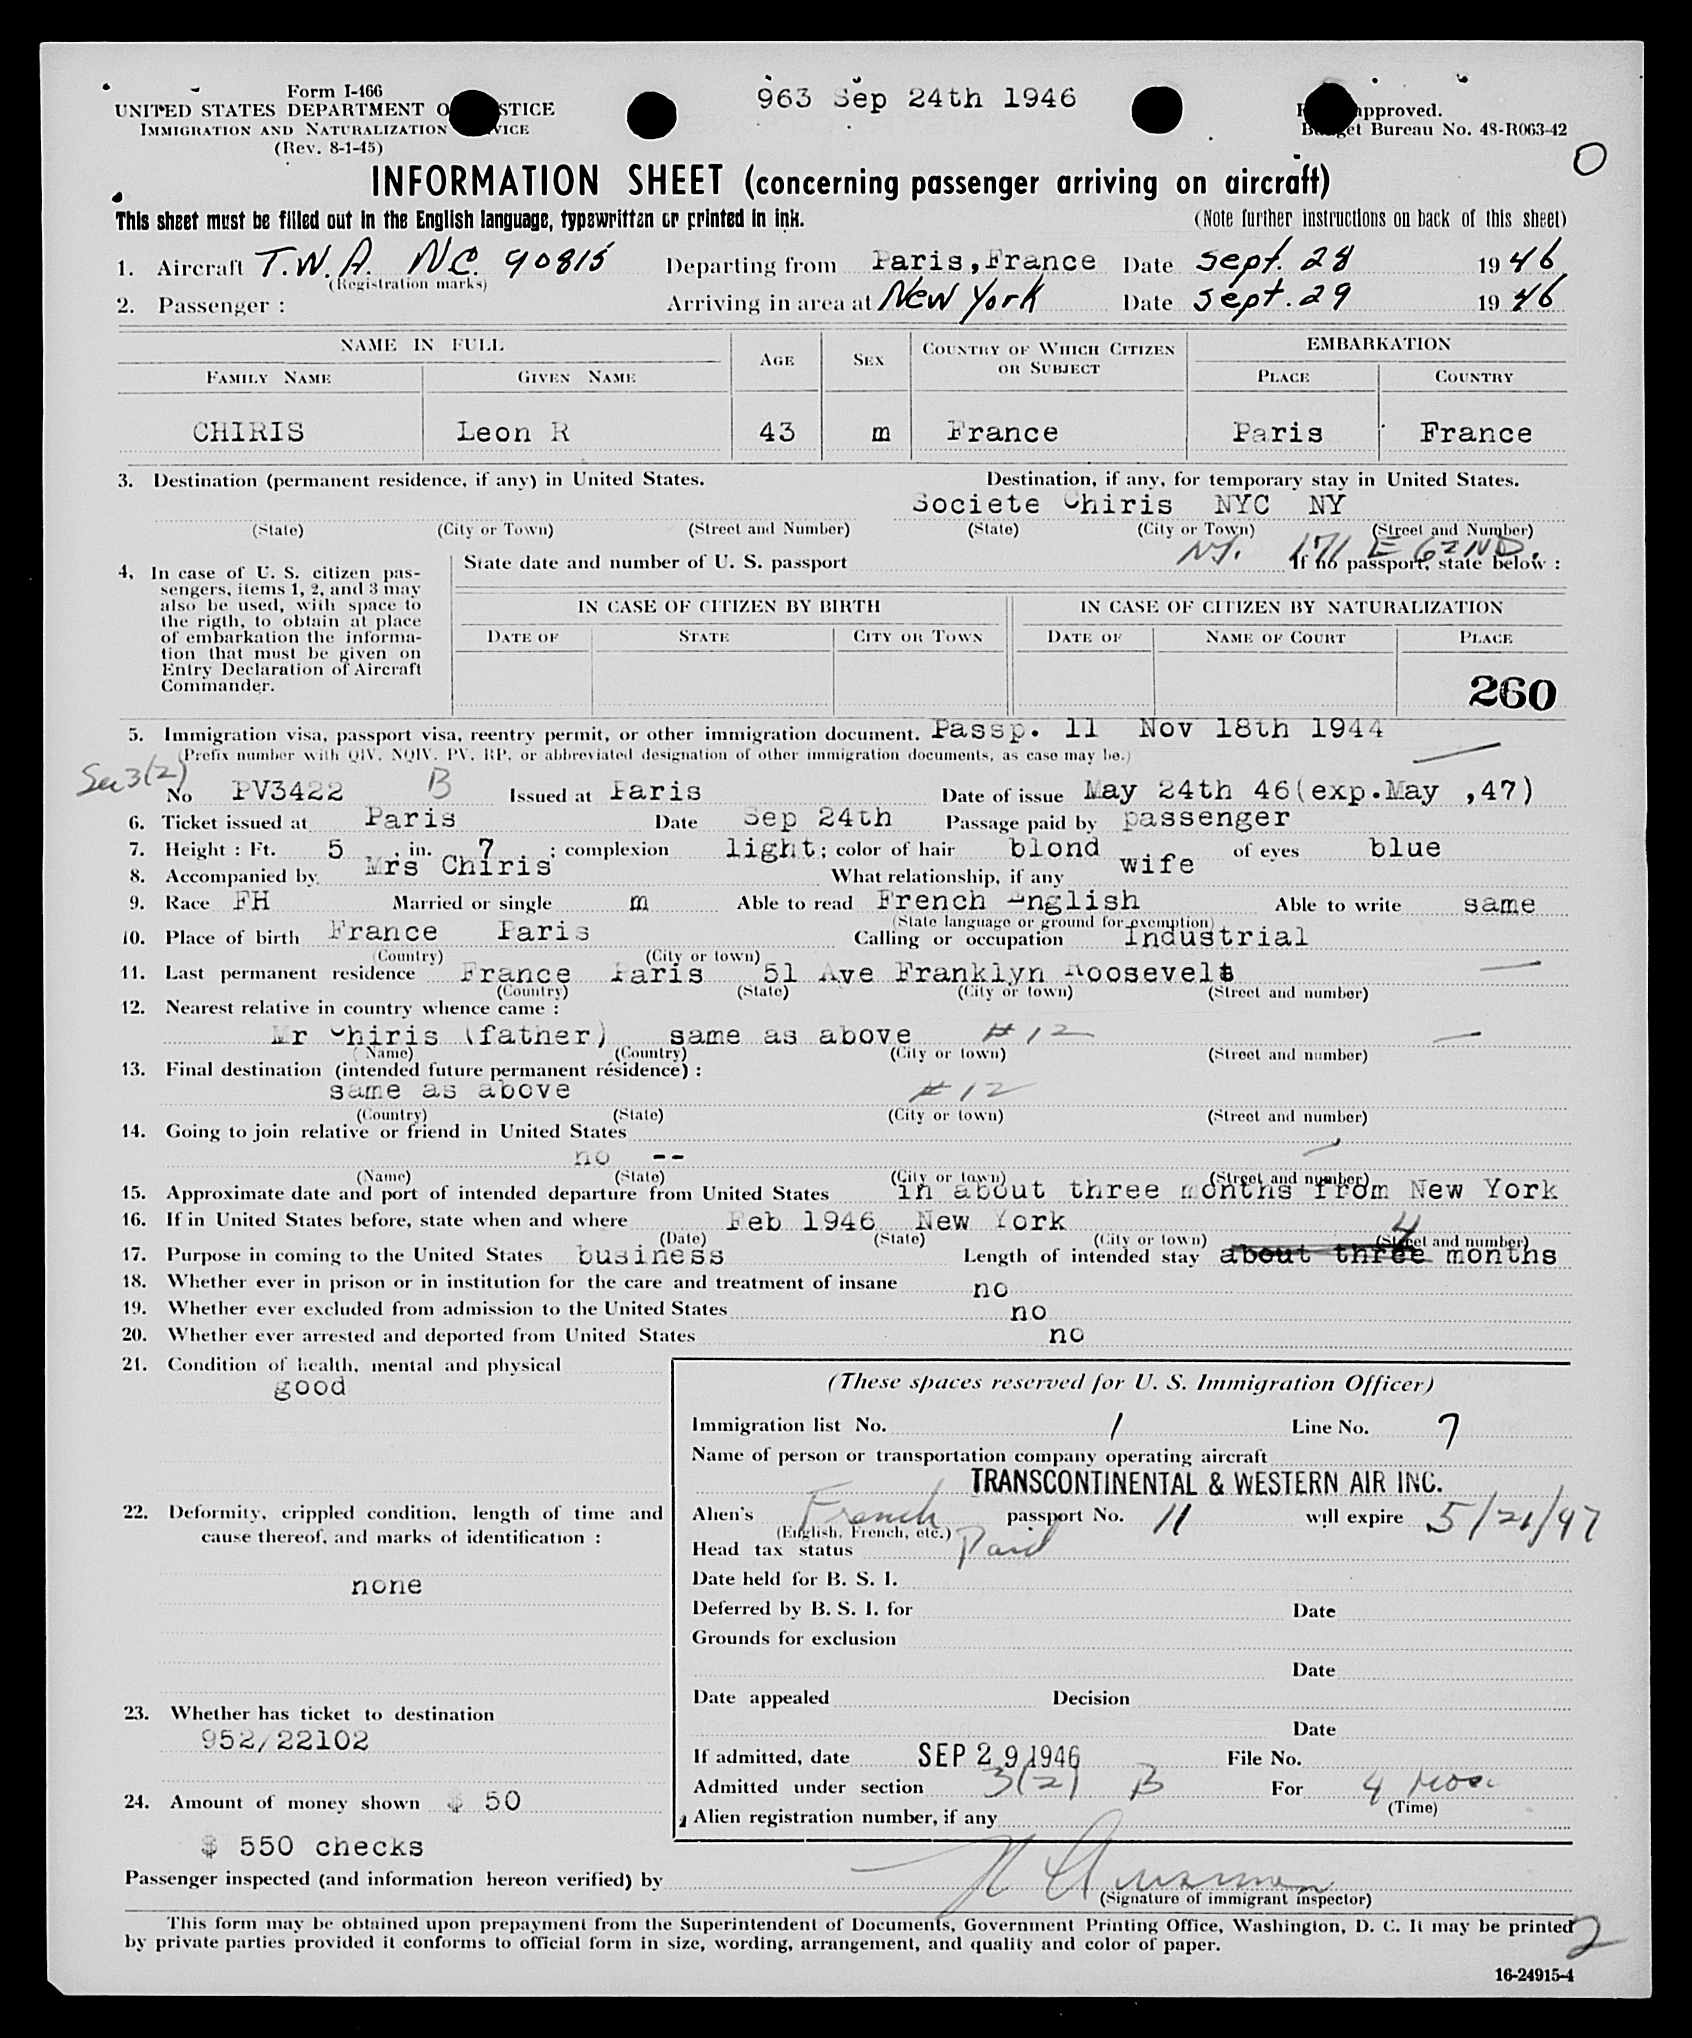 Form I-466
UNITED STATES DEPARTMENT O STICE
IMMIGRATION AND NATURALIZATION VICE
(Rev. 8-1-45)
963 Sep 24th 1946
approved.
Budget Bureau No. 43-R063-42
O
INFORMATION SHEET (concerning passenger arriving on aircraft)
This sheet must be filled out in the English language, typewritten or printed in ink. (Note further instructions on back of this sheet)
1. Aircraft T.W.A. NC. 90815 Departing from Paris,France Date Sept. 28 1946
(Registration marks)
2. Passenger : Arriving in area at New York Date Sept. 29 1946
NAME IN FULL AGE SEX COUNTRY OF WHICH CITIZEN OR SUBJECT EMBARKATION
FAMILY NAME GIVEN NAME PLACE COUNTRY
CHIRIS Leon R 43 m France Paris France
3. Destination (permanent residence, if any) in United States. Destination, if any, for temporary stay in United States.
Societe Chiris NYC NY
(State) (City or Town) (Street and Number) (State) (City or Town) (Street and Number)
NY. 171 E 62ND.
4. In case of U. S. citizen pas-
sengers, items 1, 2, and 3 may
also be used, with space to
the rigth, to obtain at place
of embarkation the informa-
tion that must be given on
Entry Declaration of Aircraft
Commander.
State date and number of U. S. passport If no passport, state below :
IN CASE OF CITIZEN BY BIRTH IN CASE OF CITIZEN BY NATURALIZATION
DATE OF STATE CITY OR TOWN DATE OF NAME OF COURT PLACE
260
5. Immigration visa, passport visa, reentry permit, or other immigration document. Passp. 11 Nov 18th 1944
(Prefix number with QIV, NQIV, PV, RP, or abbreviated designation of other immigration documents, as case may be.)
Sec 3(2)
No PV3422 B Issued at Paris Date of issue May 24th 46(exp.May ,47)
6. Ticket issued at Paris Date Sep 24th Passage paid by passenger
7. Height : Ft. 5 , in. 7 ; complexion light ; color of hair blond of eyes blue
8. Accompanied by Mrs Chiris What relationship, if any wife
9. Race FH Married or single m Able to read French English Able to write same
(State language or ground for exemption)
10. Place of birth France Paris Calling or occupation Industrial
(Country) (City or town)
11. Last permanent residence France Paris 51 Ave Franklyn Roosevelt
(Country) (State) (City or town) (Street and number)
12. Nearest relative in country whence came :
Mr Chiris (father) same as above # 12
(Name) (Country) (City or town) (Street and number)
13. Final destination (intended future permanent résidence) :
same as above # 12
(Country) (State) (City or town) (Street and number)
14. Going to join relative or friend in United States
no --
(Name) (State) (City or town) (Street and number)
15. Approximate date and port of intended departure from United States in about three months from New York
16. If in United States before, state when and where Feb 1946 New York
(Date) (State) (City or town) (Street and number)
4
17. Purpose in coming to the United States business Length of intended stay about three months
18. Whether ever in prison or in institution for the care and treatment of insane no
19. Whether ever excluded from admission to the United States no
20. Whether ever arrested and deported from United States no
21. Condition of health, mental and physical
good
22. Deformity, crippled condition, length of time and
cause thereof, and marks of identification :
none
23. Whether has ticket to destination
952/22102
24. Amount of money shown $ 50
$ 550 checks
(These spaces reserved for U. S. Immigration Officer)
Immigration list No. 1 Line No. 7
Name of person or transportation company operating aircraft
TRANSCONTINENTAL & WESTERN AIR INC.
Alien's French passport No. 11 will expire 5/21/47
(English, French, etc.)
Head tax status Paid
Date held for B. S. I.
Deferred by B. S. I. for Date
Grounds for exclusion
Date
Date appealed Decision
Date
If admitted, date SEP 29 1946 File No.
Admitted under section 3(2) B For 4 mos.
(Time)
Alien registration number, if any
Passenger inspected (and information hereon verified) by
(Signature of immigrant inspector)
This form may be obtained upon prepayment from the Superintendent of Documents, Government Printing Office, Washington, D. C. It may be printed
by private parties provided it conforms to official form in size, wording, arrangement, and quality and color of paper.
2
16-24915-4